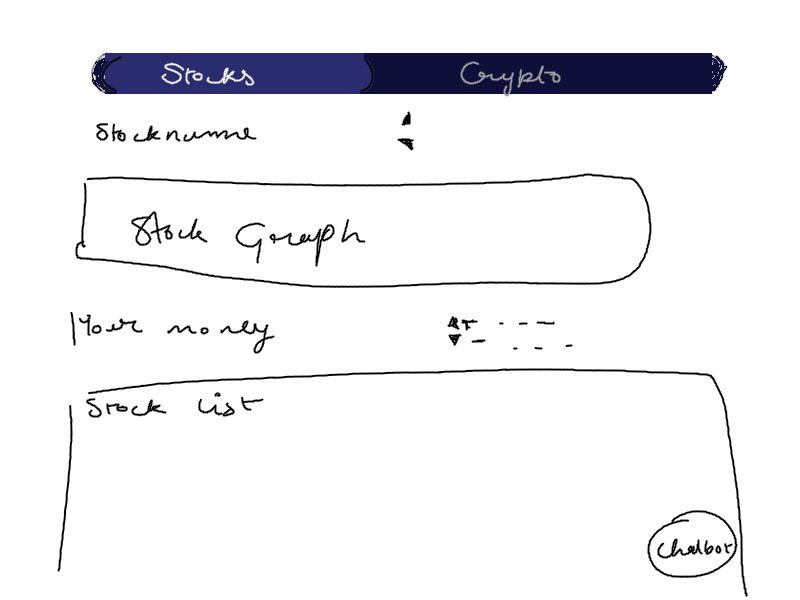 Stocks Crypto
Stockname
Stock Graph
Your money
Stock List
Chatbot